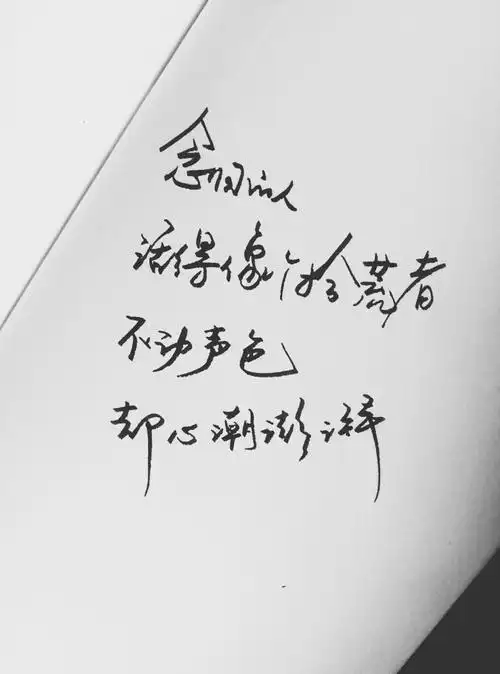 念旧的人
活得像个拾荒者
不动声色
却心潮澎湃